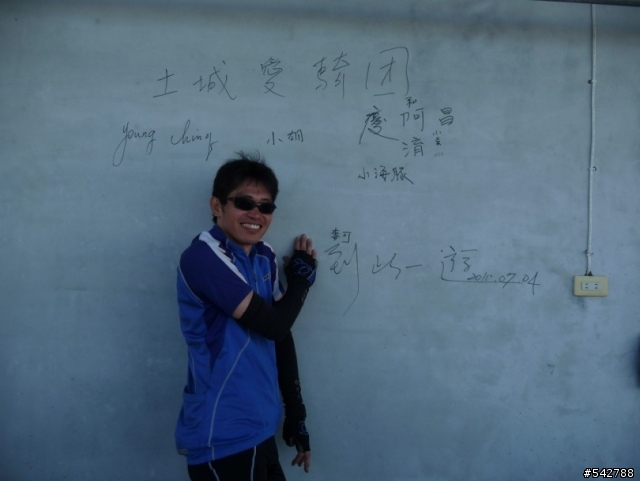 土城愛騎团
young ching 小胡 慶 和阿清 昌
小海豚
到此一遊
2010.07.04
#542788